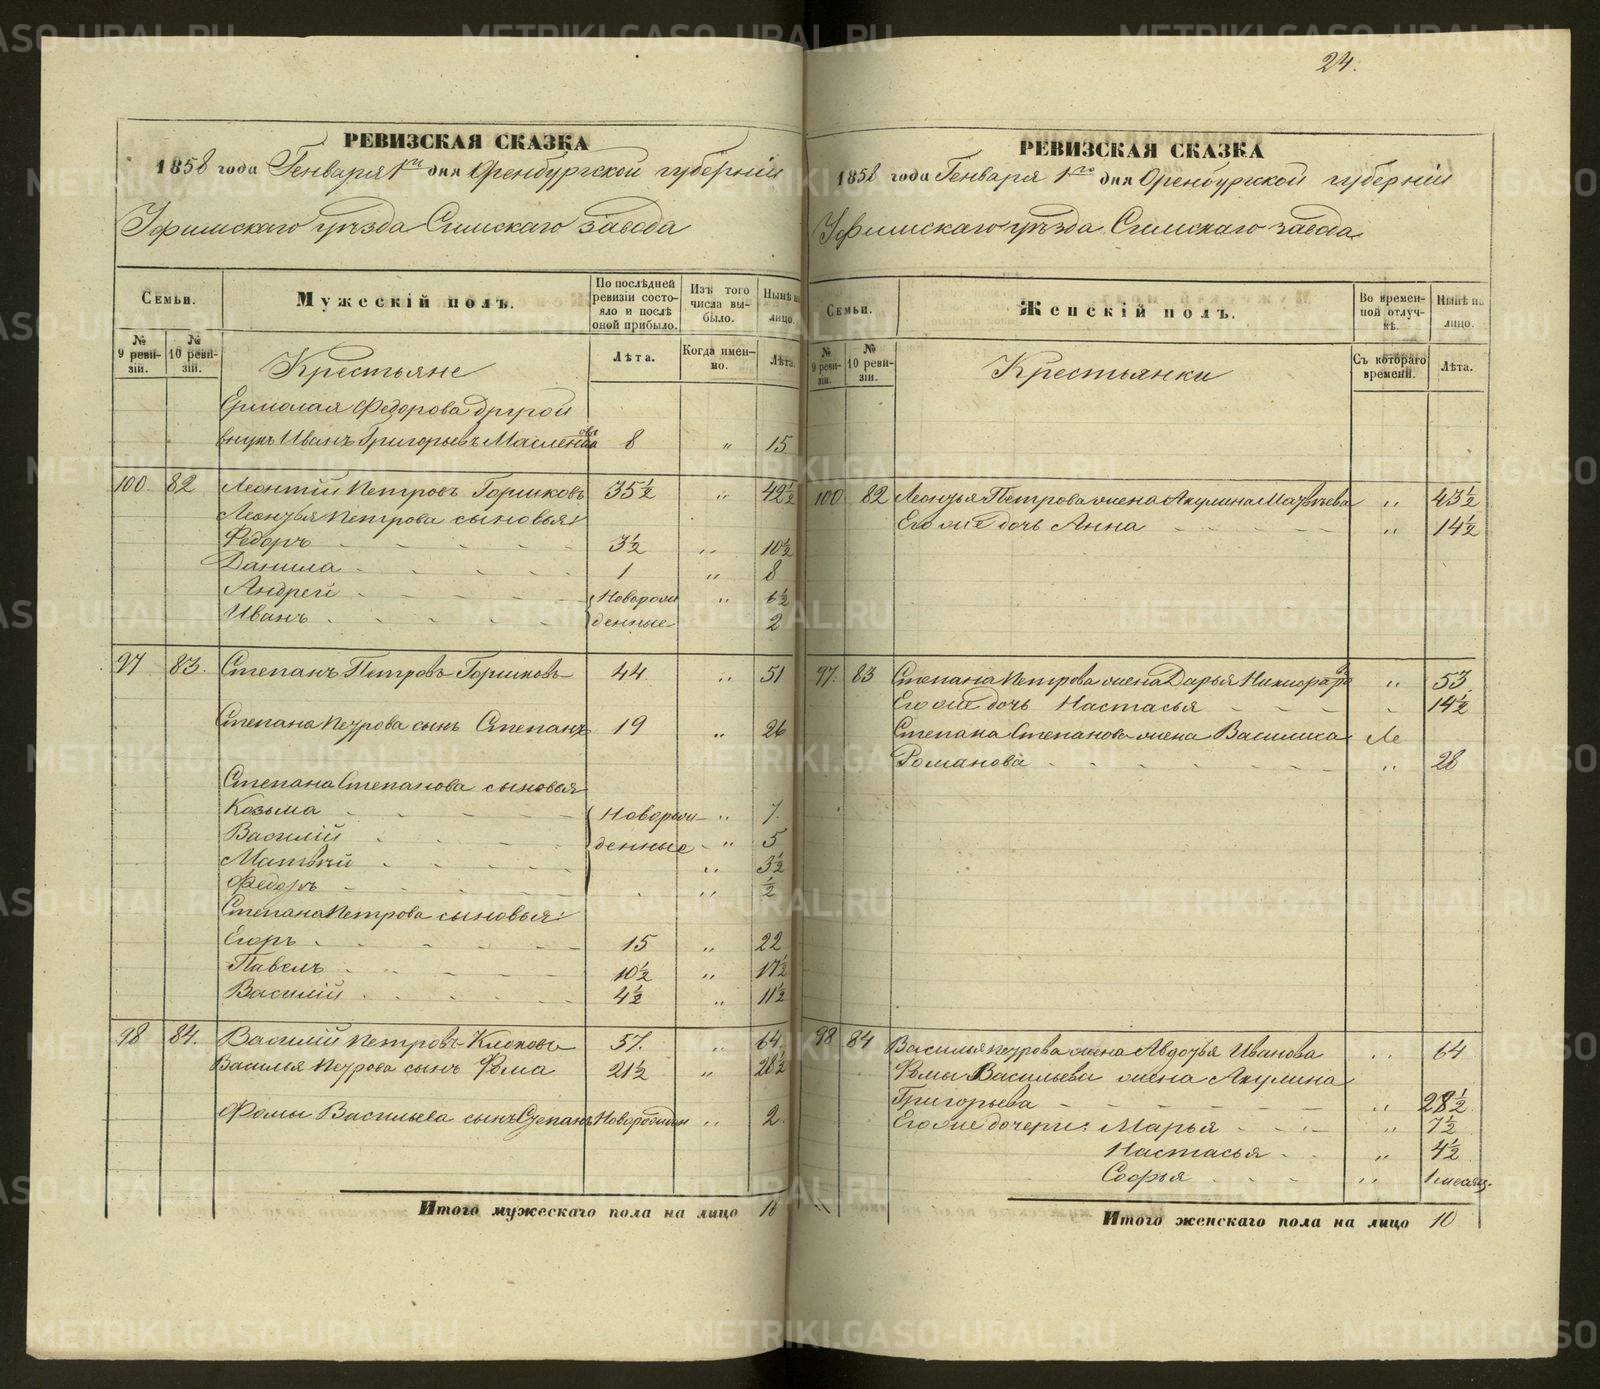 24.
РЕВИЗСКАЯ СКАЗКА
1858 года Генваря 1го дня Оренбургской губерніи
Уфимскаго уѣзда Симскаго завода
Семьи.
Мужескій полъ.
По послѣдней ревизіи состояло и послѣ оной прибыло.
Изъ того числа выбыло.
Нынѣ на лицо.
№ 9 ревизіи.
№ 10 ревизіи.
Крестьяне
Лѣта.
Когда именно.
Лѣта.
Ермолая Федорова другой
внукъ Иванъ Григорьевъ 8 „ 15
100 82 Леонтій Петровъ Горшковъ 35½ „ 42½
Леонтья Петрова сыновья:
Федоръ 3½ „ 10½
Данила 1 „ 8
Андрей Новорож „ 6½
Иванъ денные 2
97 83. Степанъ Петровъ Горшковъ 44. „ 51
Степана Петрова сынъ Степанъ 19 „ 26
Степана Степанова сыновья
Козьма Новорож „ 7.
Василій денные „ 5
Матвѣй „ 3½
Федоръ „ ½
Степана Петрова сыновья:
Егоръ 15 „ 22
Павелъ 10½ „ 17½
Василій 4½ „ 11½
98 84. Василій Петровъ Клоковъ 57. „ 64.
Василья Петрова сынъ Фома 21½ „ 28½
Фомы Васильева сынъ Степанъ Новорожден „ 2.
Итого мужескаго пола на лицо 18
РЕВИЗСКАЯ СКАЗКА
1858 года Генваря 1го дня Оренбургской губерніи
Уфимскаго уѣзда Симскаго завода
Семьи.
Женскій полъ.
Во временной отлучкѣ.
Нынѣ на лицо.
№ 9 ревизіи.
№ 10 ревизіи.
Крестьянки
Съ котораго времени.
Лѣта.
100 82 Леонтья Петрова жена Акулина Матвѣева „ 43½
Его же дочь Анна „ 14½
97. 83 Степана Петрова жена Дарья Никифорова „ 53.
Его же дочь Настасья 14½
Степана Степанова жена Василиса
Романова „ 28
98 84 Василья Петрова жена Авдотья Иванова „ 64
Фомы Васильева жена Акулина
Григорьева „ 28½
Его же дочери: Марья „ 7½
Настасья „ 4½
Софья „ 1 месяц.
Итого женскаго пола на лицо 10
METRIKI.GASO-URAL.RU